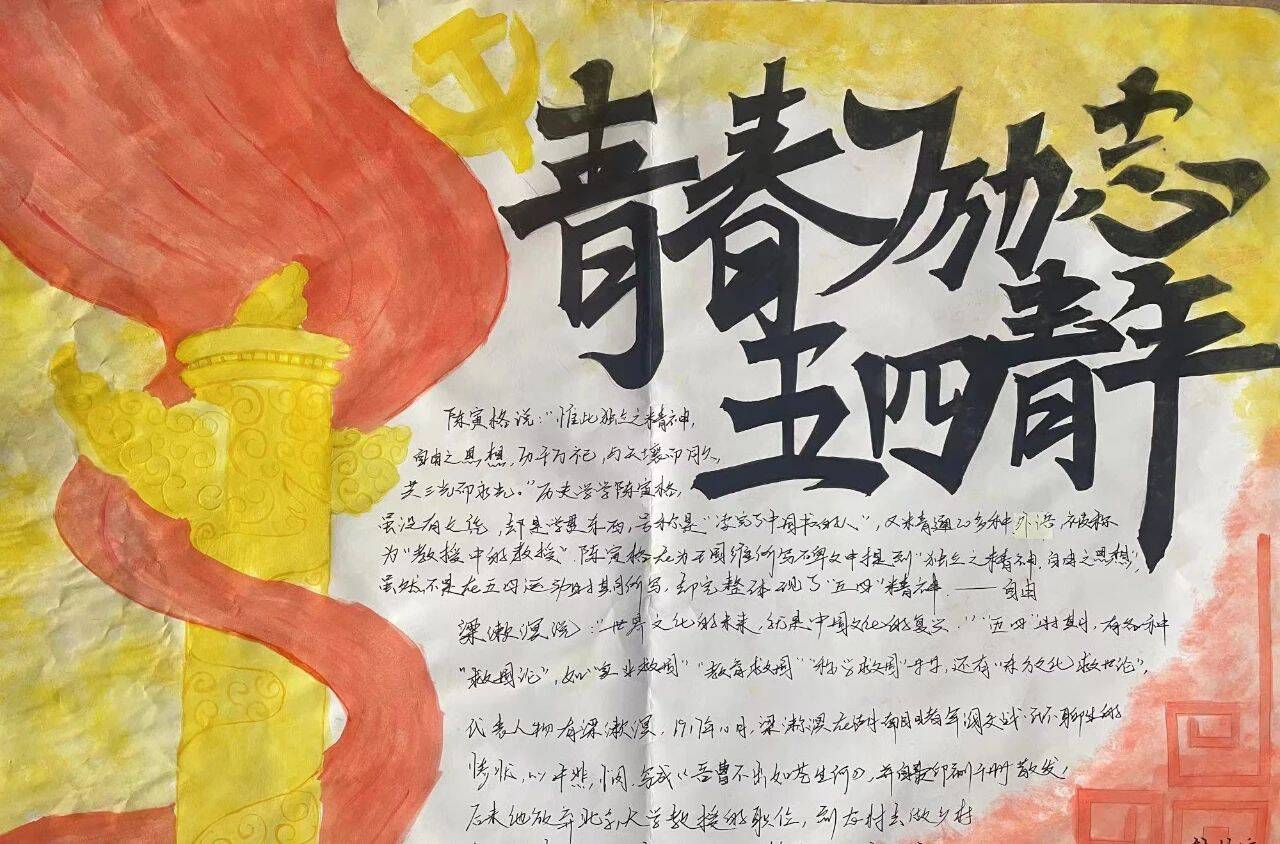 青春励志
五四青年
陈寅恪说："惟此独立之精神，
自由之思想，历千万祀，与天壤而同久，
共三光而永光。"历史学学陈寅恪，
虽没有文凭，却是学贯东西，号称是"读完了中国书的人"，又精通二十多种外语，被称
为"教授中的教授"．陈寅恪在为王国维所写碑文中提到"独立之精神、自由之思想"，
虽然不是在五四运动时其所写，却完整体现了"五四"精神．——自由
梁漱溟说："世界文化的未来，就是中国文化的复兴．""五四"时期，有各种
"救国论"，如"实业救国""教育救国""科学救国"等等，还有"东方文化救世论"，
代表人物有梁漱溟，1917年10月，梁漱溟在湖南目睹军阀交战 民不聊生的
惨状，以 悲悯 写成《吾曹不出如苍生何》，并自费印刷 册散发，
后来他放弃北京大学教授的职位，到农村去做乡村